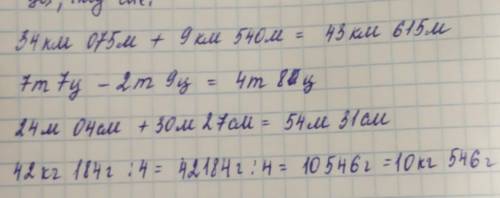 34км 075м + 9км 540м = 43км 615м
7т 7ц - 2т 9ц = 4т 8ц
24м 04см + 30м 27см = 54м 31см
42кг 184г : 4 = 42184г : 4 = 10546г = 10кг 546г